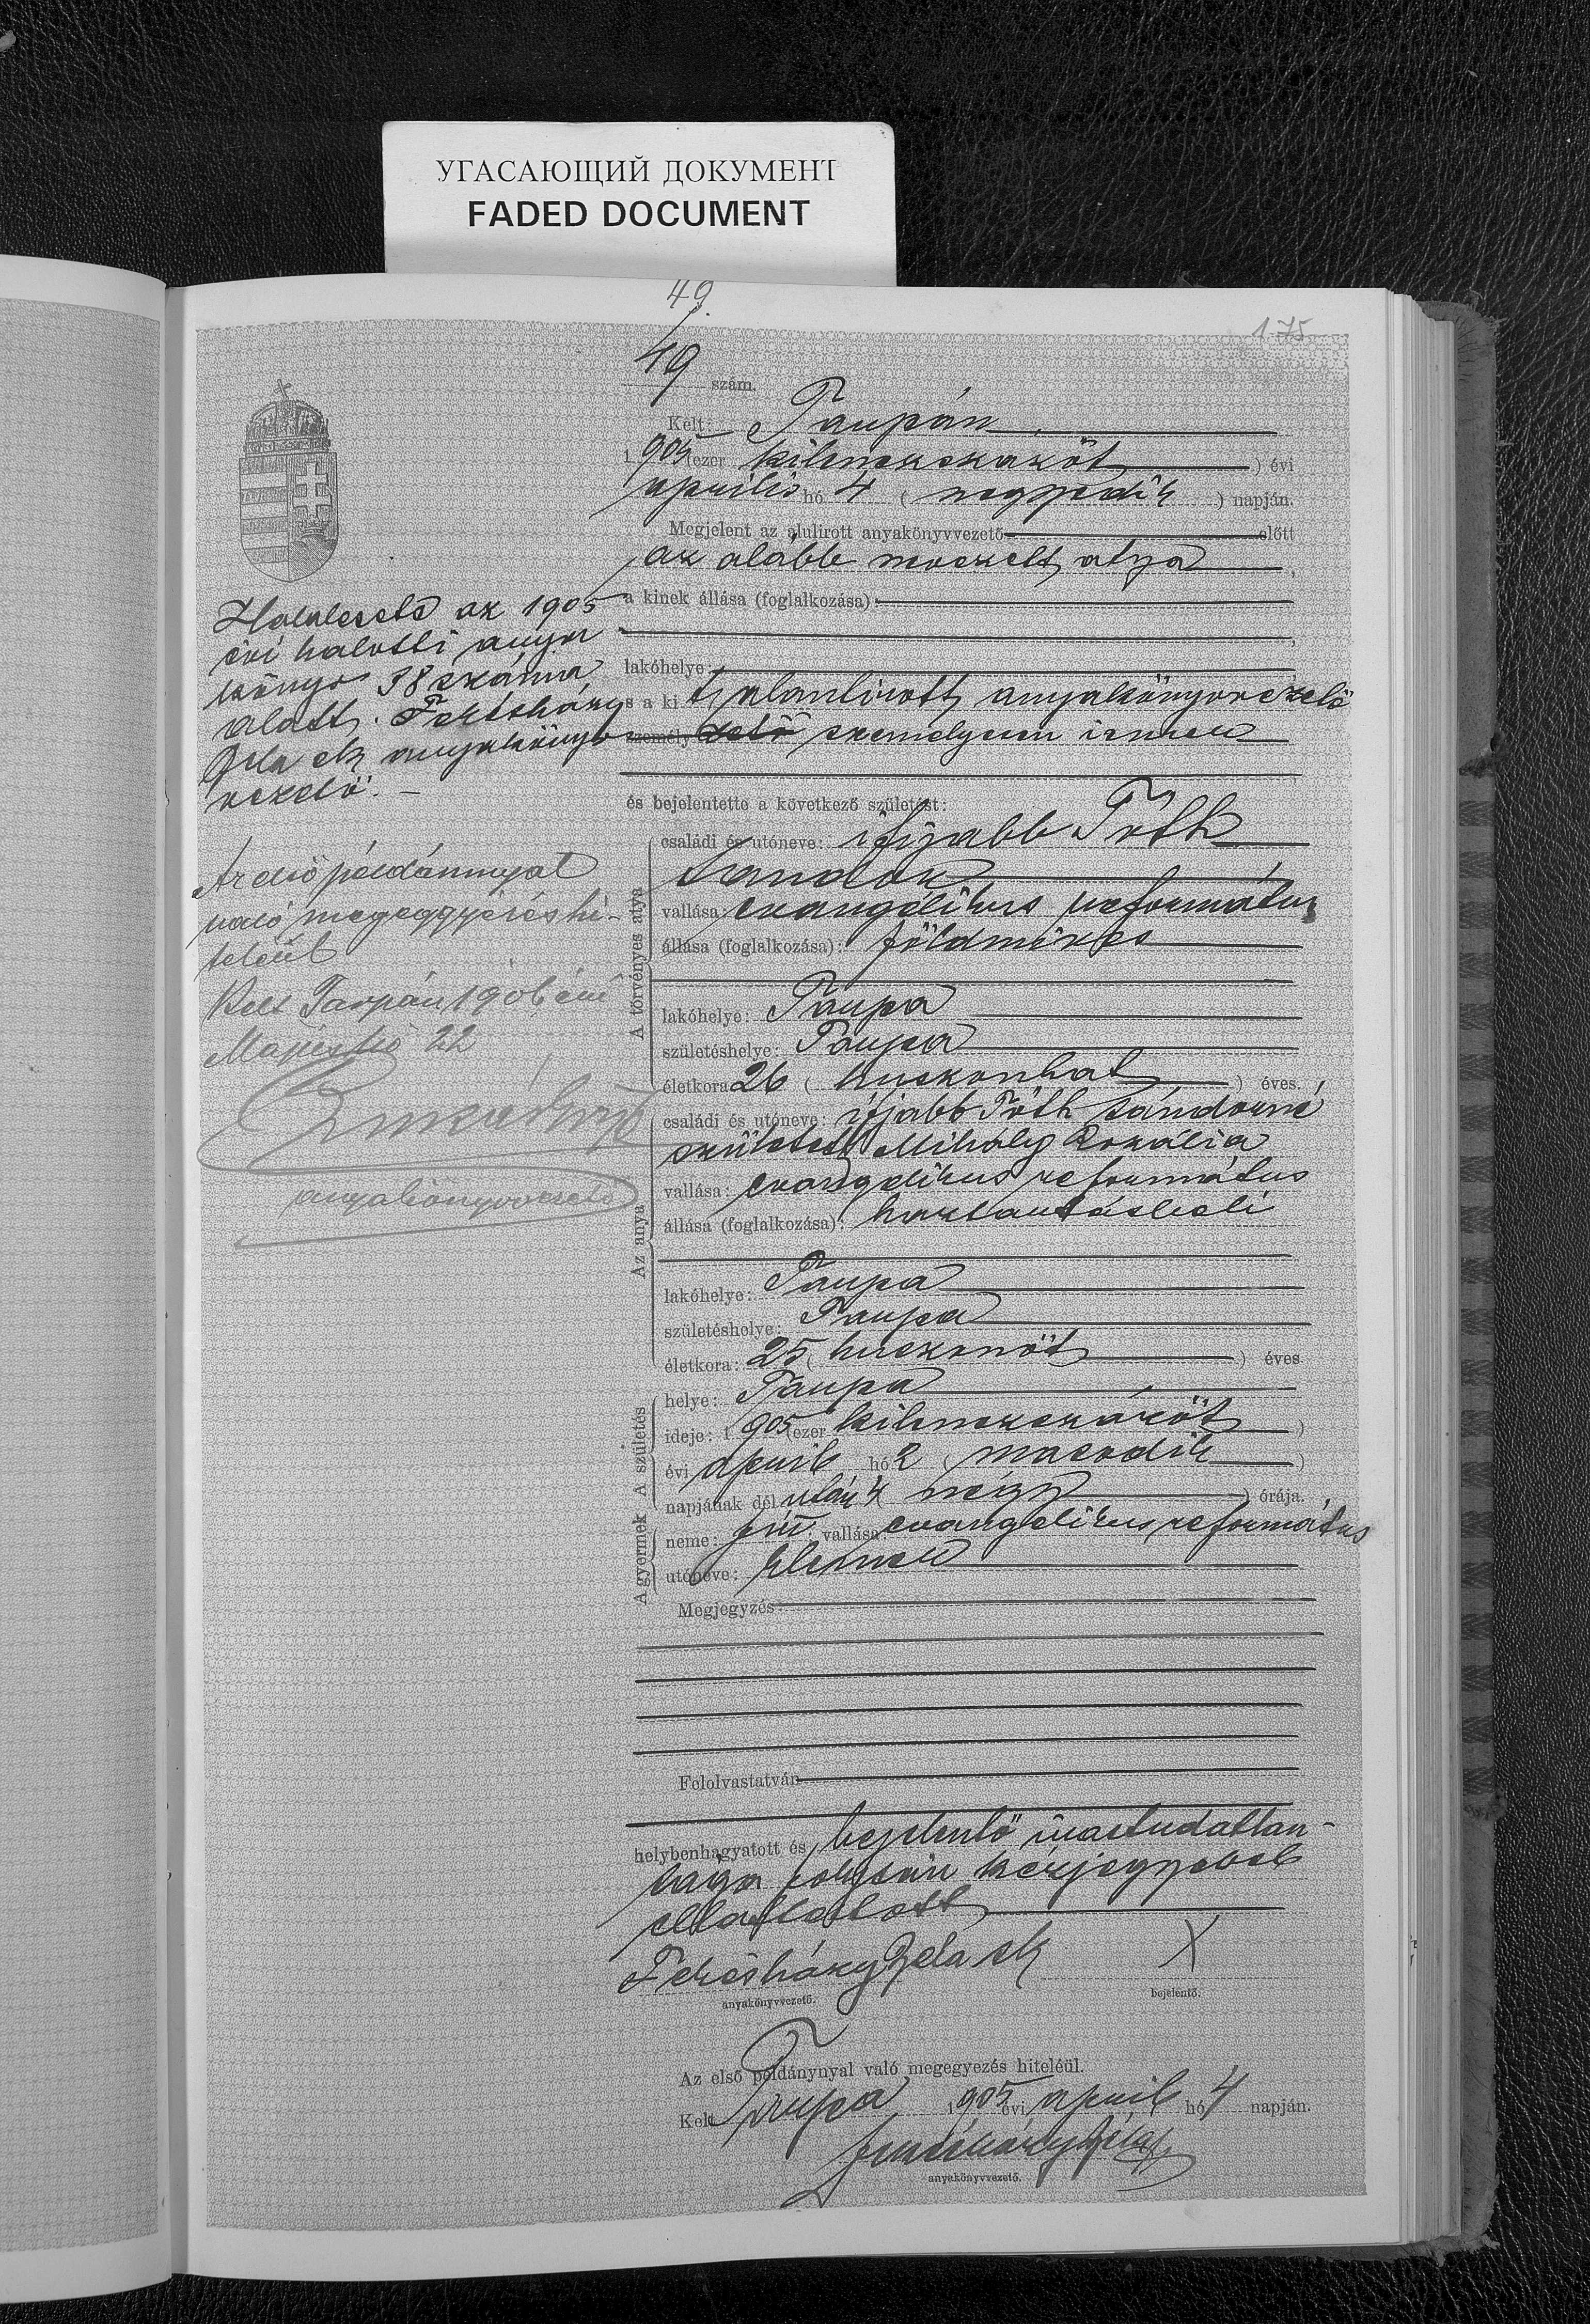 УГАСАЮЩИЙ ДОКУМЕНТ
FADED DOCUMENT
49.
175
49 szám.
Kelt: Tarpán
1 905 (ezer kilenczszázöt ) évi
április hó 4 ( negyedik ) napján.
Megjelent az alulirott anyakönyvvezető előtt
az alább nevezett atya ,
a kinek állása (foglalkozása):
,
lakóhelye:
s a ki t alantirott anyakönyvvezető
személy zető személyesen ismer
és bejelentette a következő születést:
A törvényes atya
családi és utóneve: ifjabb Tóth
Sándor
vallása: evangélikus református
állása (foglalkozása): földmíves
lakóhelye: Tarpa
születéshelye: Tarpa
életkora 26 ( huszonhat ) éves.
Az anya
családi és utóneve: ifjabb Tóth Sándorné
született Mihály Rozália
vallása: evangelikus református
állása (foglalkozása): háztartásbeli
lakóhelye: Tarpa
születéshelye: Tarpa
életkora: 25 ( huszonöt ) éves.
A gyermek
A születés
helye: Tarpa
ideje: 1 905 (ezer kilenczszázöt )
évi april hó 2 ( második )
napjának dél után 4 négy ) órája.
neme: fiú; vallása evangelikus református
utóneve: Elemér
Megjegyzés:
Felolvastatván
helybenhagyatott és bejelentő irástudatlan-
sága folytán kézjegyével
elláttatott
Fekésházy Béla sk X
anyakönyvvezető. bejelentő.
Az első példánynyal való megegyezés hiteléül.
Kelt Tarpa 1 905 évi april hó 4 napján.
anyakönyvvezető.
Halálesete az 1905
évi halotti anya
könyv 38 száma
alatt. Fekésházy
Béla sk anyakönyv
vezető. –
Az első példánnyal
való megegyezés hi-
teléül
Kelt Tarpán 1906 évi
22
anyakönyvvezető